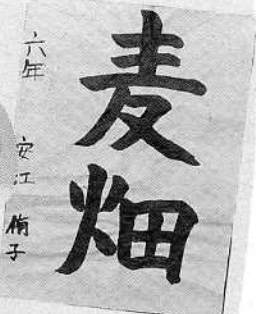 麦畑
六年 安江 侑子